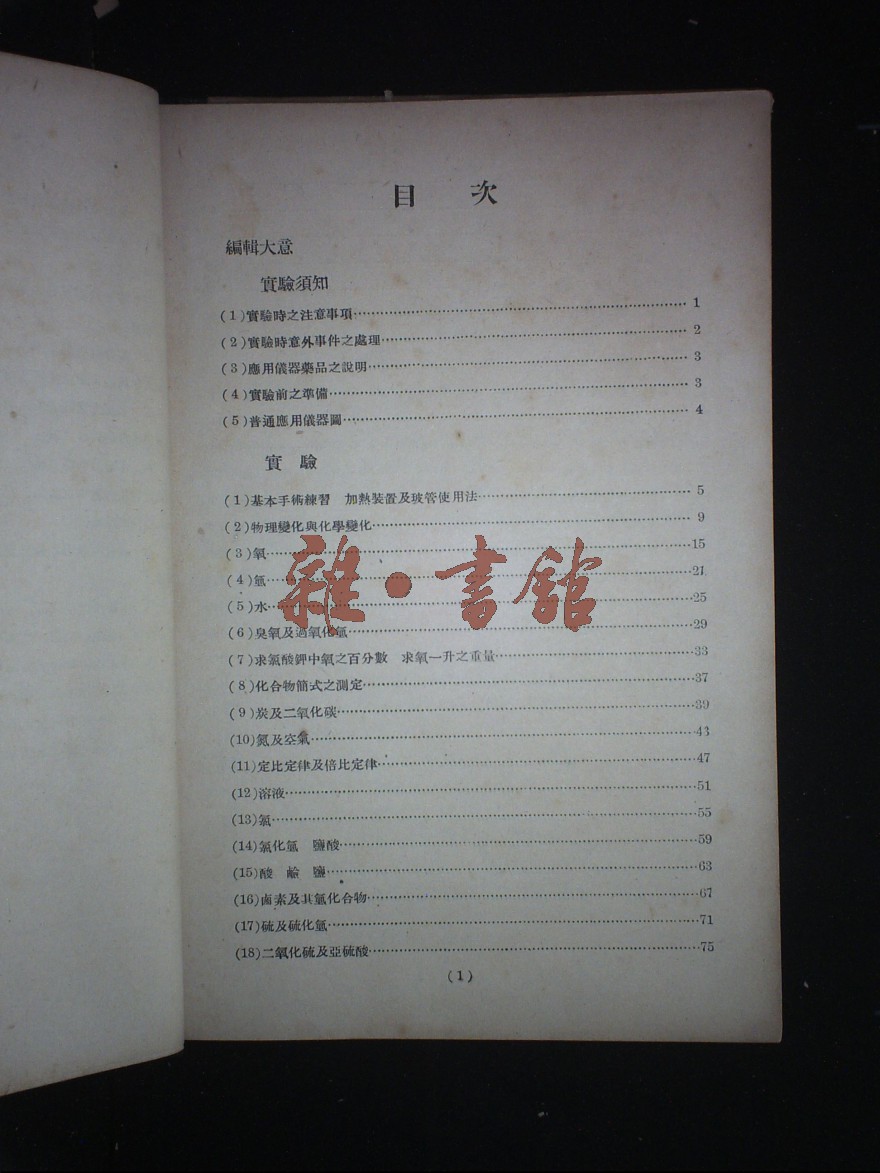 目 次
編輯大意
實驗須知
(1)實驗時之注意事項 1
(2)實驗時意外事件之處理 2
(3)應用儀器藥品之說明 3
(4)實驗前之準備 3
(5)普通應用儀器圖 4
實驗
(1)基本手術練習 加熱裝置及玻管使用法 5
(2)物理變化與化學變化 9
(3)氧 15
(4)氫 21
(5)水 25
(6)臭氧及過氧化氫 29
(7)求氯酸鉀中氧之百分數 求氧一升之重量 33
(8)化合物簡式之測定 37
(9)炭及二氧化碳 39
(10)氮及空氣 43
(11)定比定律及倍比定律 47
(12)溶液 51
(13)氯 55
(14)氯化氫 鹽酸 59
(15)酸 鹼 鹽 63
(16)鹵素及其氫化合物 67
(17)硫及硫化氫 71
(18)二氧化硫及亞硫酸 75
(1)
雜·書館